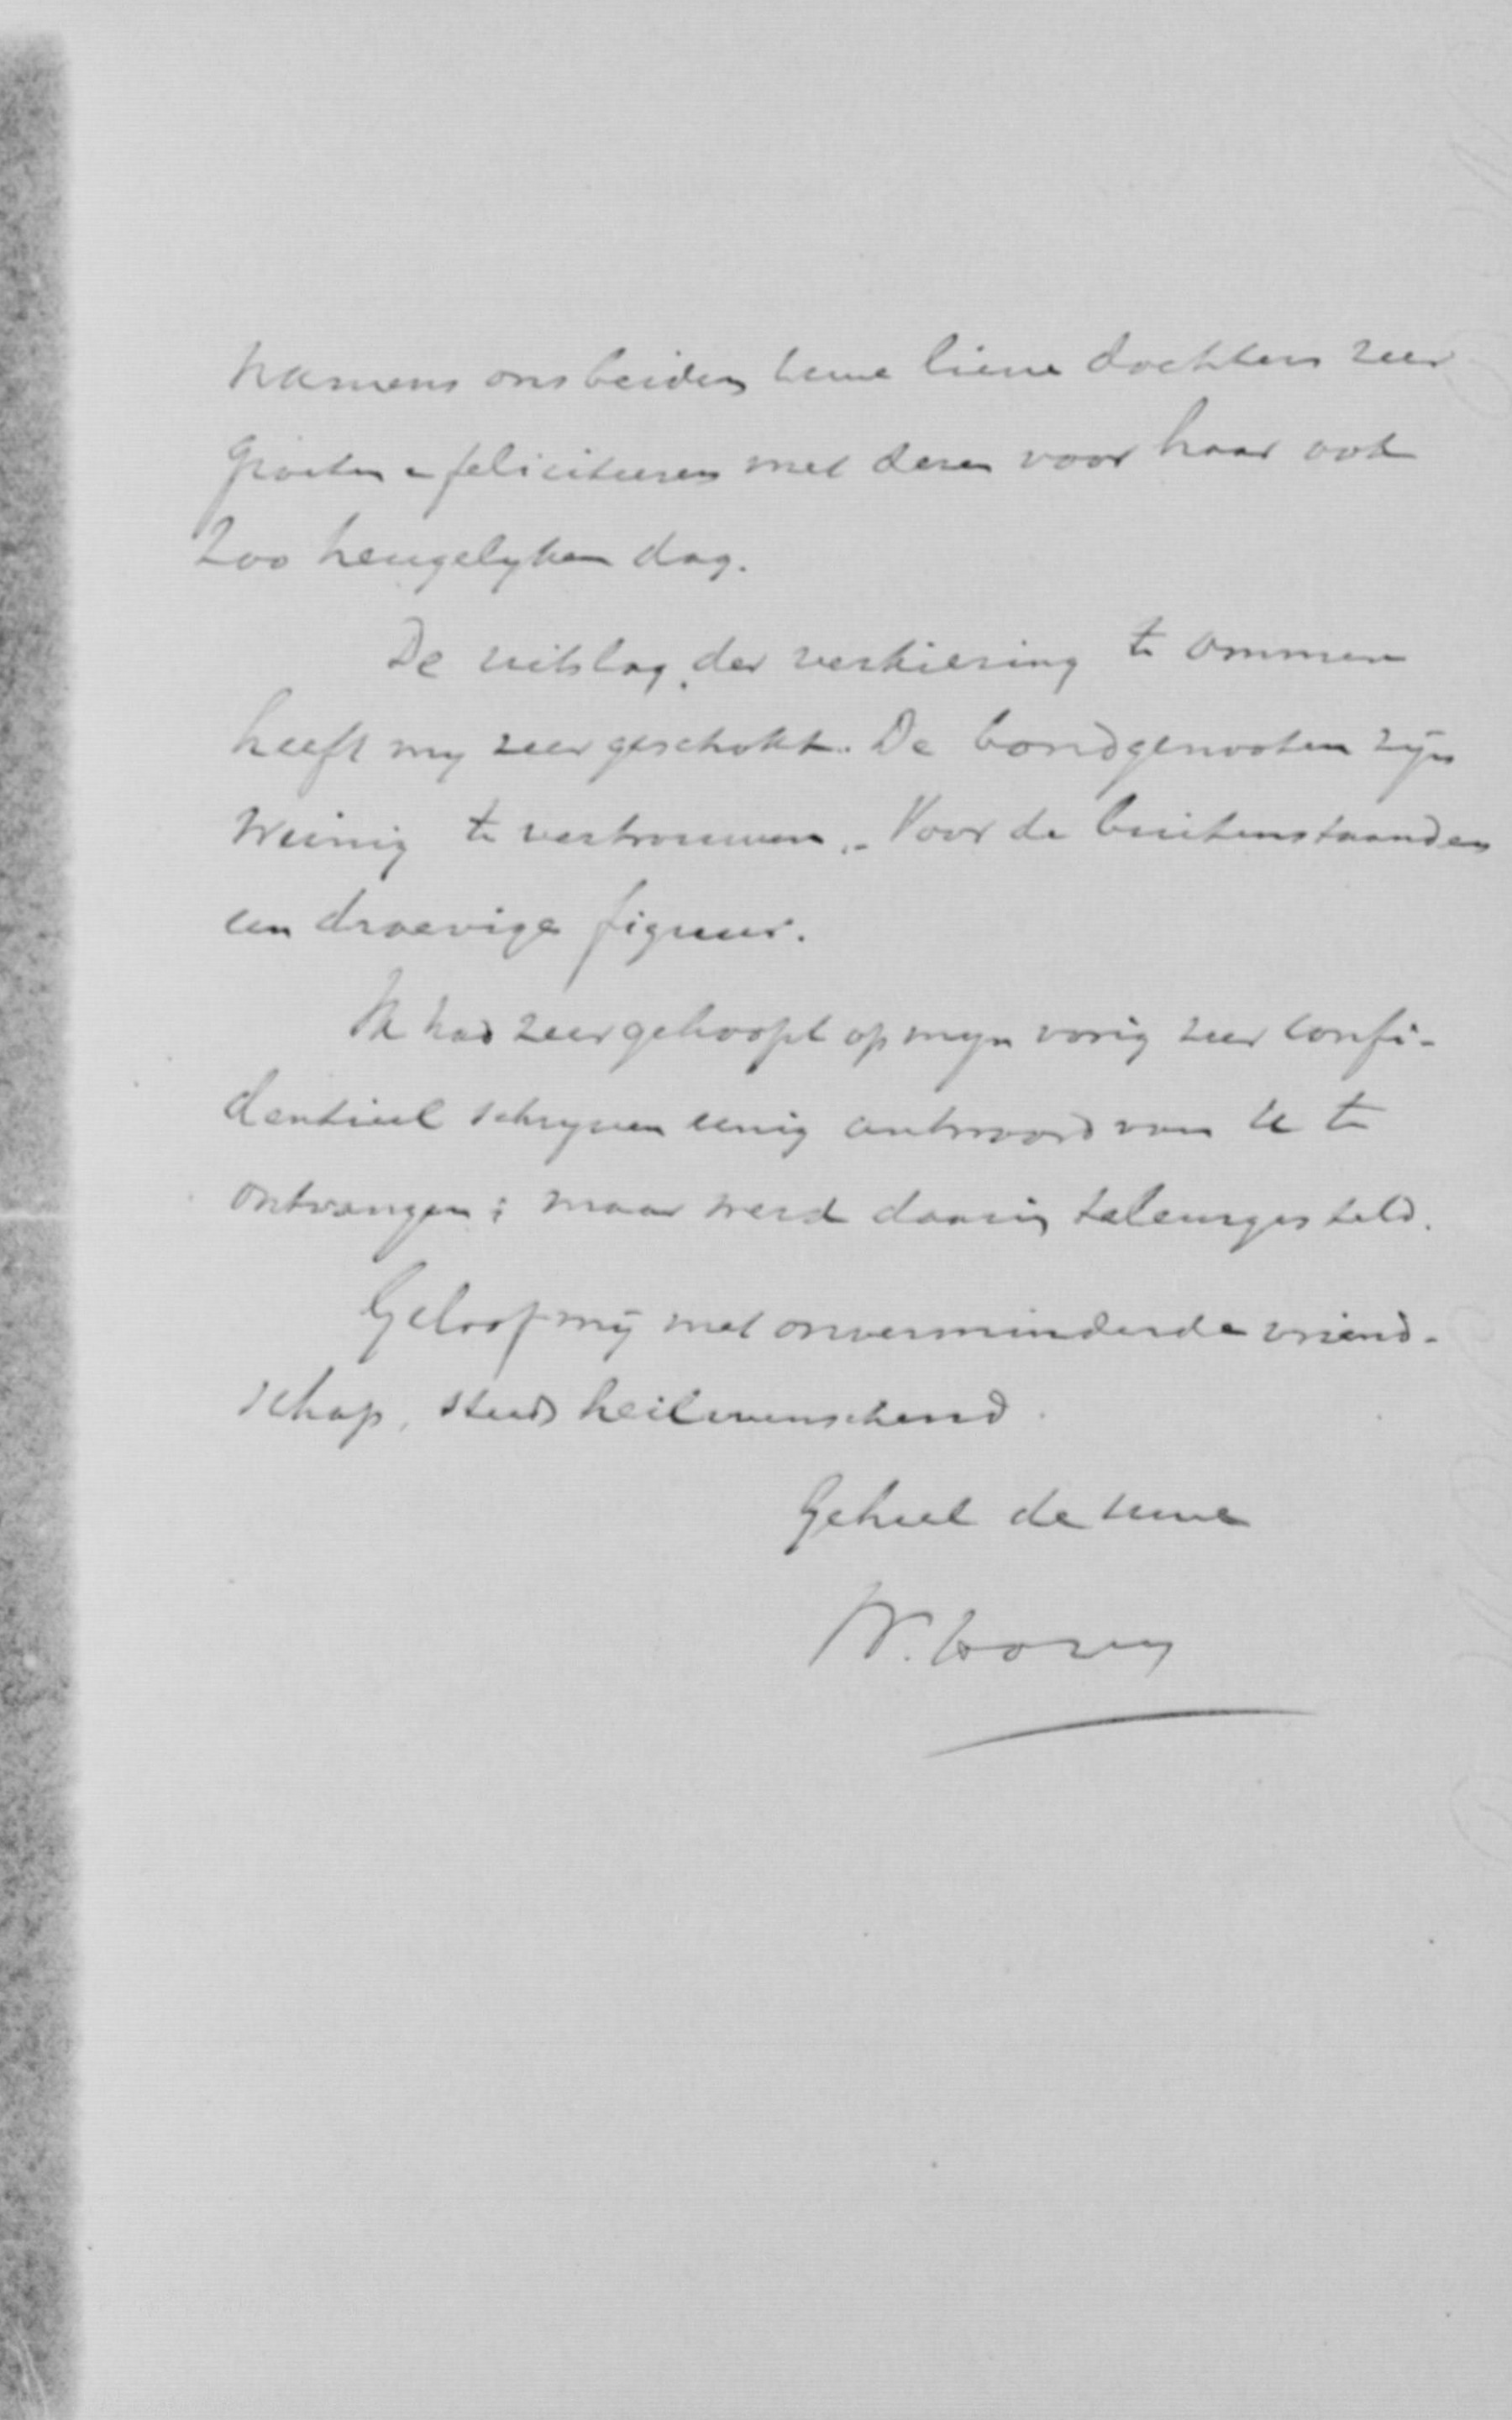 namens ons beiden Uwe lieve dochters zeer
groeten & feliciteeren met dezen voor haar ook
zoo heugelyken dag.
De uitslag der verkiezing te Ommen
heeft my zeer geschokt. De bondgenooten zijn
weinig te vertrouwen. - Voor de buitenstaanders
een droevige figuur.
Ik had zeer gehoopt op myn vorig zeer confi-
dentieel schryven eenig antwoord van U te
ontvangen; maar werd daarin teleurgesteld.
Geloof mij met onverminderde vriend-
schap, steeds heilwenschend.
Geheel de Uwe
W. Hovy